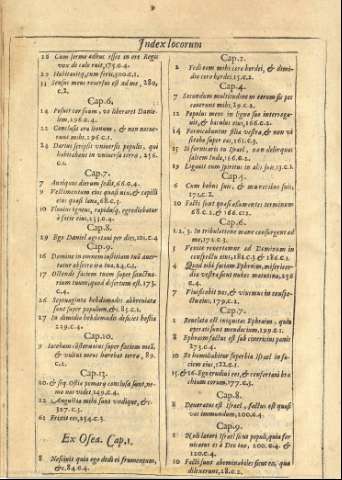 Index locorum
28 Cum sermo adhuc esset in ore Regis
vox de cælo ruit, 175.c.4.
31 Sensus meus reversus est ad me, 289,
c.2.
Cap.6.
14 Posuit cor suum, ut liberaret Danie-
lem, 296.c.4.
22 Conclusit ora leonum, & non nocue-
runt mihi, 296.c.1.
24 Darius scripsit universis populis, qui
habitabant in universa terra, 256.
c.1.
Cap.7.
9 Antiquus dierum sedit, 66.c.4.
9 Vestimentum eius quasi nix, & capilli
eius quasi lana, 68.c.3.
10 Fluvius igneus, rapidusq; egrediebatur
à facie eius, 133.c.4.
Cap.8.
29 Ego Daniel ægrotavi per dies, 101.c.4
Cap.9.
16 Domine in omnem iustitiam tuam aver-
tatur obsecro ira tua, 24.c.3.
17 Ostende faciem tuam super sanctua-
rium tuum, quod desertum est, 173.
c.4.
26 Septuaginta hebdomades abbreviatæ
sunt super populum, &c. 85.c.1.
27 In dimidio hebdomadis deficiet hostia
229.c.4.
Cap.10.
9 Iacebam consternatus super faciem meam,
& vultus meus hærebat terra, 89.
c.1.
Cap.13.
22 Angustiæ mihi sunt undique, &c.
327.c.3.
Ex Osea. Cap.1.
8 Nescivit quia ego dedi ei frumentum,
&c. 84.c.4.
Cap.7.
2 Fodi eam mihi coro hordei, & dimi-
dio coro hordei, 15.c.2.
Cap.4.
7 Secundum multitudinem eorum sic pec
caverunt mihi, 29.c.2.
12 Populus meus in ligno suo interroga-
vit, & baculus eius, 166.c.2.
14 Fornicabuntur filiæ vestræ, & non vi
sitabo super eas, 161.c.3.
15 Si fornicaris tu Israel, non delinquas
saltem Iuda, 166.c.2.
19 Ligavit eum spiritus in alis suis, 13.c.1.
Cap.5.
10 Facti sunt quasi assumentes terminum
68.c.2. & 166.c.2.
Cap.6
1. 2. 3. In tribulatione mane consurgent ad
me, 171.c.3.
3 Venite revertamur ad Dominum in
conspectu eius, 181.c.3. & 186.c.1.
4 Quid tibi faciam Ephraim, misericor-
dia vestra sunt nubes matutina, 236
c.4.
7 Vivificabit nos, & vivemus in conspe-
ctu eius, 179.c.2.
Cap.7.
2 Revelata est iniquitas Ephraim, quia
operati sunt mendacium, 199.c.1.
8 Ephraim factus est sub cinericius panis
273.c.4.
10 Et humiliabitur superbia Israel in fa-
ciem eius, 122.c.1.
15. & 16. Ego erudivi eos, & confortavi bra
chium eorum, 177.c.3.
Cap.8.
8 Devoratus est Israel, factus est quasi
vas immundum, 200.c.4.
Cap.9.
1 Noli lætari Israel sicut populi, quia for
nicatus es à Deo tuo, 200.c.4. &
120.c.4.
10 Facti sunt abominabiles sicut ea, quæ
dilexerunt, 18.c.2.